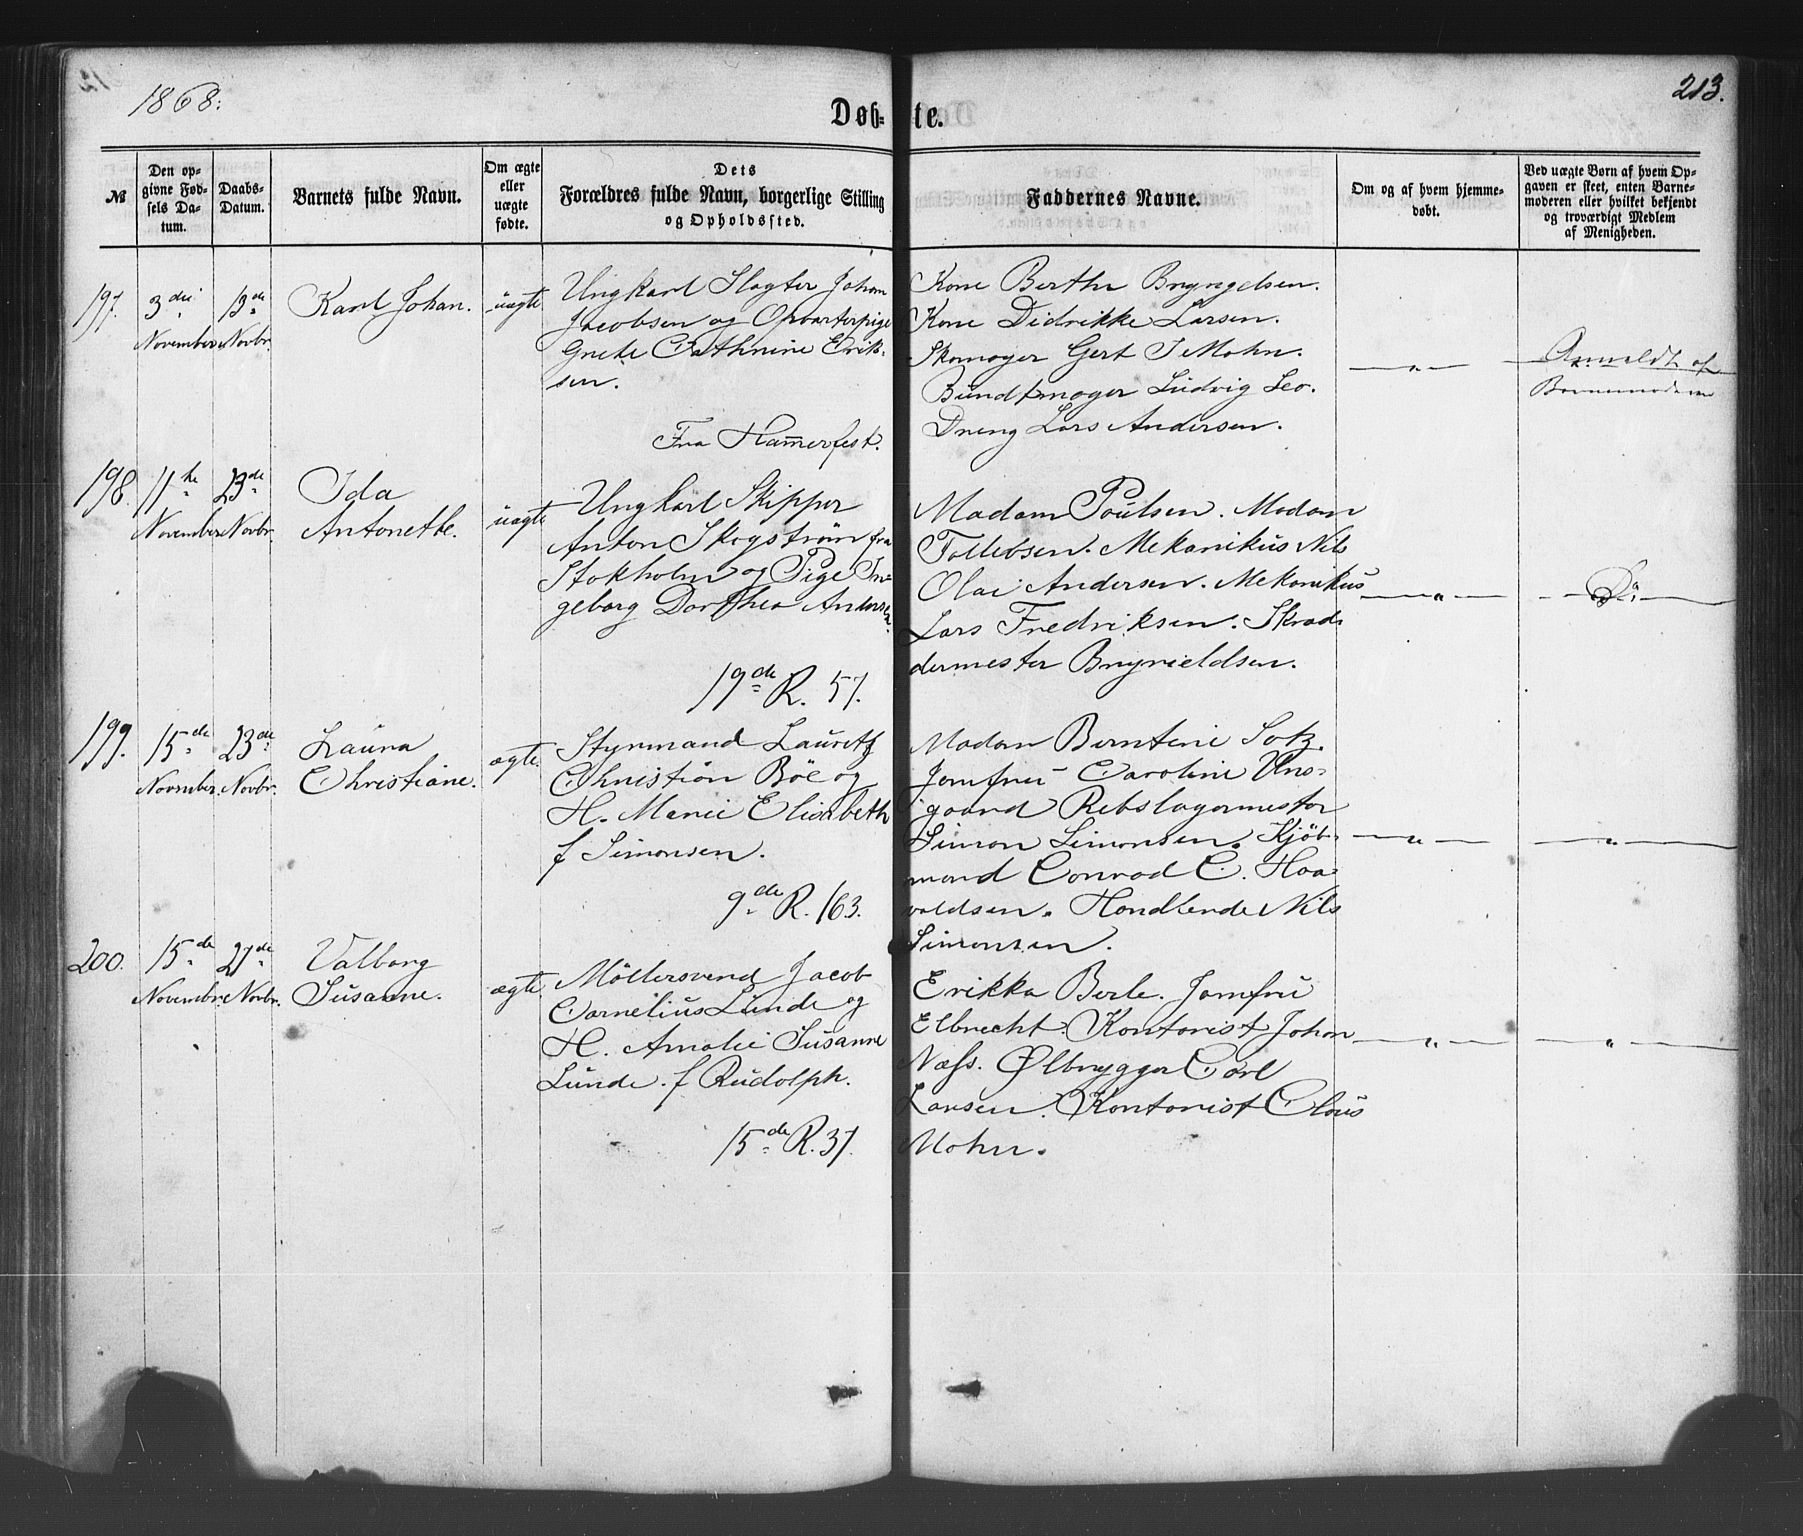 1868.
213.
Døb-te.
№
Den op-
givne Fød-
sels Da-
tum.
Daabs-
Datum.
Barnets fulde Navn.
Om ægte
eller
uægte
fødte.
Dets
Forældres fulde Navn, borgerlige Stilling
og Opholdssted.
Faddernes Navne.
Om og af hvem hjemme-
døbt.
Ved uægte Børn af hvem Op-
gaven er skeet, enten Barne-
moderen eller hvilket bekjendt
og troværdigt Medlem
af Menigheden.
197.
3die
November
13de
Novbr.
Karl Johan.
uægte
Ungkarl Slagter Johan
Jacobsen og Opvarterpige
Grete Cathrine Erik-
sen.
Fra Hammerfest.
Kone Berthe Brynyelsen.
Kone Didrikke Larsen.
Skomager Gert J Mohn.
Bundtmager Ludvig Leo.
Dreng Lars Andersen.
— " —
Anmeldt af
Barnemoderen
198.
11te
November
23de
Novbr.
Ida
Antonette.
uægte
Ungkarl Skipper
Anton Skogstrøm fra
Stokholm og Pige In-
geborg Dorthea Andersen.
19de R. 57.
Madam Poulsen. Madam
Tollebsen. Mekanikus Nils
Olai Andersen. Mekanikus
Lars Fredriksen. Skræd-
dermester Brynieldsen.
— " —
— Do. —
199.
15de
November.
23de
Novbr.
Laura
Christiane.
ægte
Styrmand Lauritz
Christian Böe og
H. Marie Elisabeth
f Simonsen.
9de R. 163.
Madam Berntine Sotz.
Jomfru Caroline Uns-
gaard Rebslagermester
Simon Simonsen. Kjøb-
mand Conrad C. Haa-
valdsen. Handlende Nils
Simonsen.
— " —
— " —
200.
15de
Novembr.
27de
Novbr.
Valborg
Susanne.
ægte
Möllersvend Jacob
Cornelius Lunde og
H. Amalie Susanne
Lunde. f Rudolph.
15de R. 37.
Erikka Berle. Jomfru
Elbrecht. Kontorist Johan
Næss. Ølbrygger Carl
Larsen. Kontorist Claus
Mohn.
— " —
— " —